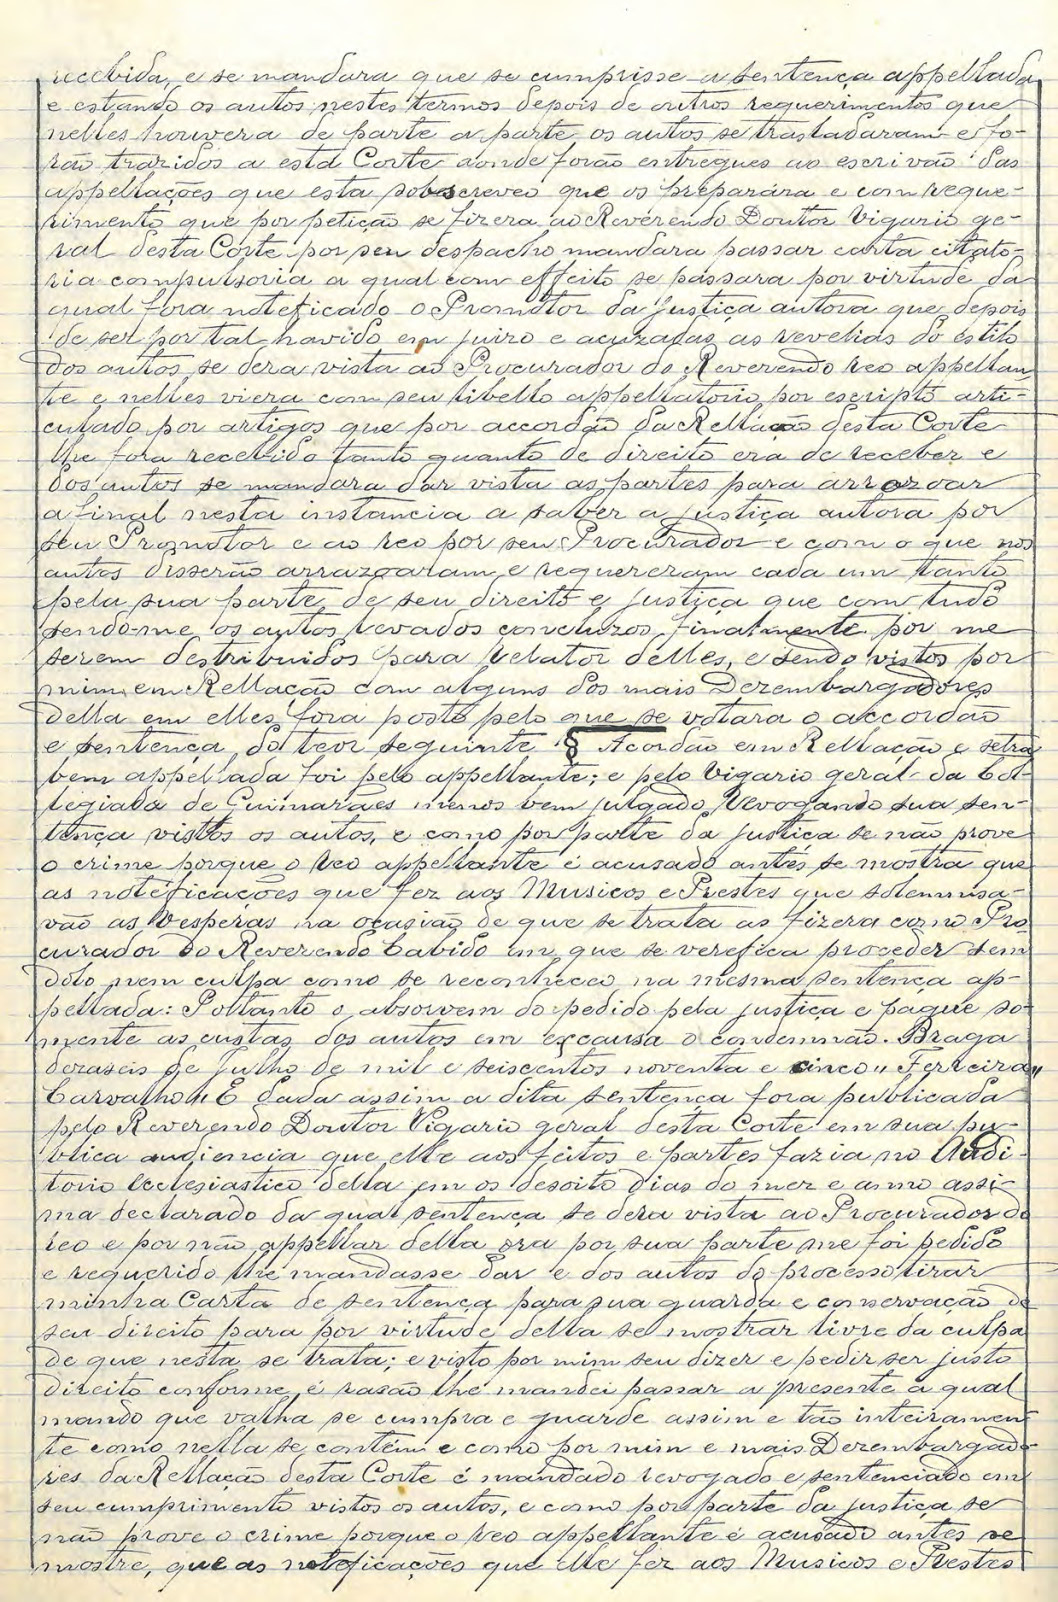 recebida, e se mandara que se cumprisse a sentença appellada
e estando os autos nestes termos depois de outros requerimentos que
nelles houvera de parte a parte os autos se trasladaram e fo-
rão trazidos a esta Corte aonde forão entregues ao escrivão das
appellações que esta sobscreveo que os preparára e com reque-
rimento que por petição se fizera ao Reverendo Doutor Vigario ge-
ral desta Corte por seu despacho mandara passar carta citato-
ria compulsoria a qual com effeito se passara por virtude da
qual fora noteficado o Promotor da justiça autora que depois
de ser por tal havido em juizo e acuzadas as revelias do estilo
dos autos, se dera vista ao Procurador do Reverendo reo appellan
te e nelles viera com seu libello appellatorio por escripto arti-
culado por artigos que por accordão da Rellação desta Corte
lhe fora recebido tanto quanto de direito era de receber e
dos autos se mandara dar vista as partes para arrozoar
a final nesta instancia a saber a justiça autora por
seu Promotor e ao reo por seu Procurador e com o que nos
autos disserão arrazoaram e requereram cada um tanto
pela sua parte de seu direito e justiça que com tudo
sendo-me os autos levados concluzos finalmente por me
serem destribuidos para relator delles, e sendo vistos por
mim em Rellação com alguns dos mais Dezembargadores
della em elles fora posto pelo que se votara o accordão
e sentença do teor seguinte § Acordão em Rellação &
bem appellada foi pelo appellante; e pelo Vigario geral da Col-
legiada de Guimarães menos bem julgado, Revogando sua sen-
tença vistos os autos, e como por parte da justiça se não prove
o crime porque o reo appellante é acusado antes se mostra que
as noteficações que fez aos Musicos e Prestes que solemnisa-
vão as vesperas na ocasião de que se trata as fizera como Pro
curador do Reverendo Cabido em que se verefica proceder sem
dolo nem culpa como se reconheceo na mesma sentença ap-
pellada: Poltanto o absorvem do pedido pela justiça e pague so-
mente as custas dos autos em excausa o condemnão. Braga
dezaseis de Julho de mil e seiscentos noventa e cinco „ Ferreira „
Carvalho „ E dada assim a dita sentença fora publicada
pelo Reverendo Doutor Vigario geral desta Corte em sua pu-
blica audiencia que elle aos feitos e partes fazia no Audi-
torio Ecclesiastico della em os desoito dias do mez e anno assi-
ma declarado da qual sentença se dera vista ao Procurador do
reo e por não appellar della ora por sua parte me foi pedido
e requerido lhe mandasse dar e dos autos do processo tirar
minha Carta de sentença para sua guarda e conservação de
seu direito para por virtude della se mostrar livre da culpa
de que nesta se trata; e visto por mim seu dizer e pedir ser justo
direito conforme é rasão lhe mandei passar a presente a qual
mando que valha se cumpra e guarde assim e tão inteiramen
te como nella se contém e como por mim e mais Dezembargado-
res da Rellação desta Corte é mandado revogado e sentenciado em
seu cumprimento vistos os autos, e como por parte da justiça se
não prove o crime porque o reo appellante é acusado antes se
mostre, que as noteficações que elle fez aos Musicos e Prestes